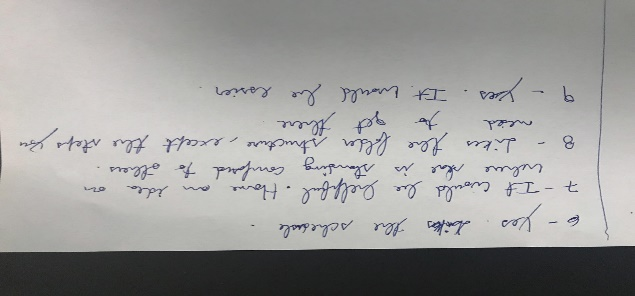 6 - Yes. likes the schedule.
7 - It would be helpful. Have an idea on
where she is standing compared to others.
8 - Likes the folder structure, except the steps you
need to get there
9 - Yes. It would be easier.